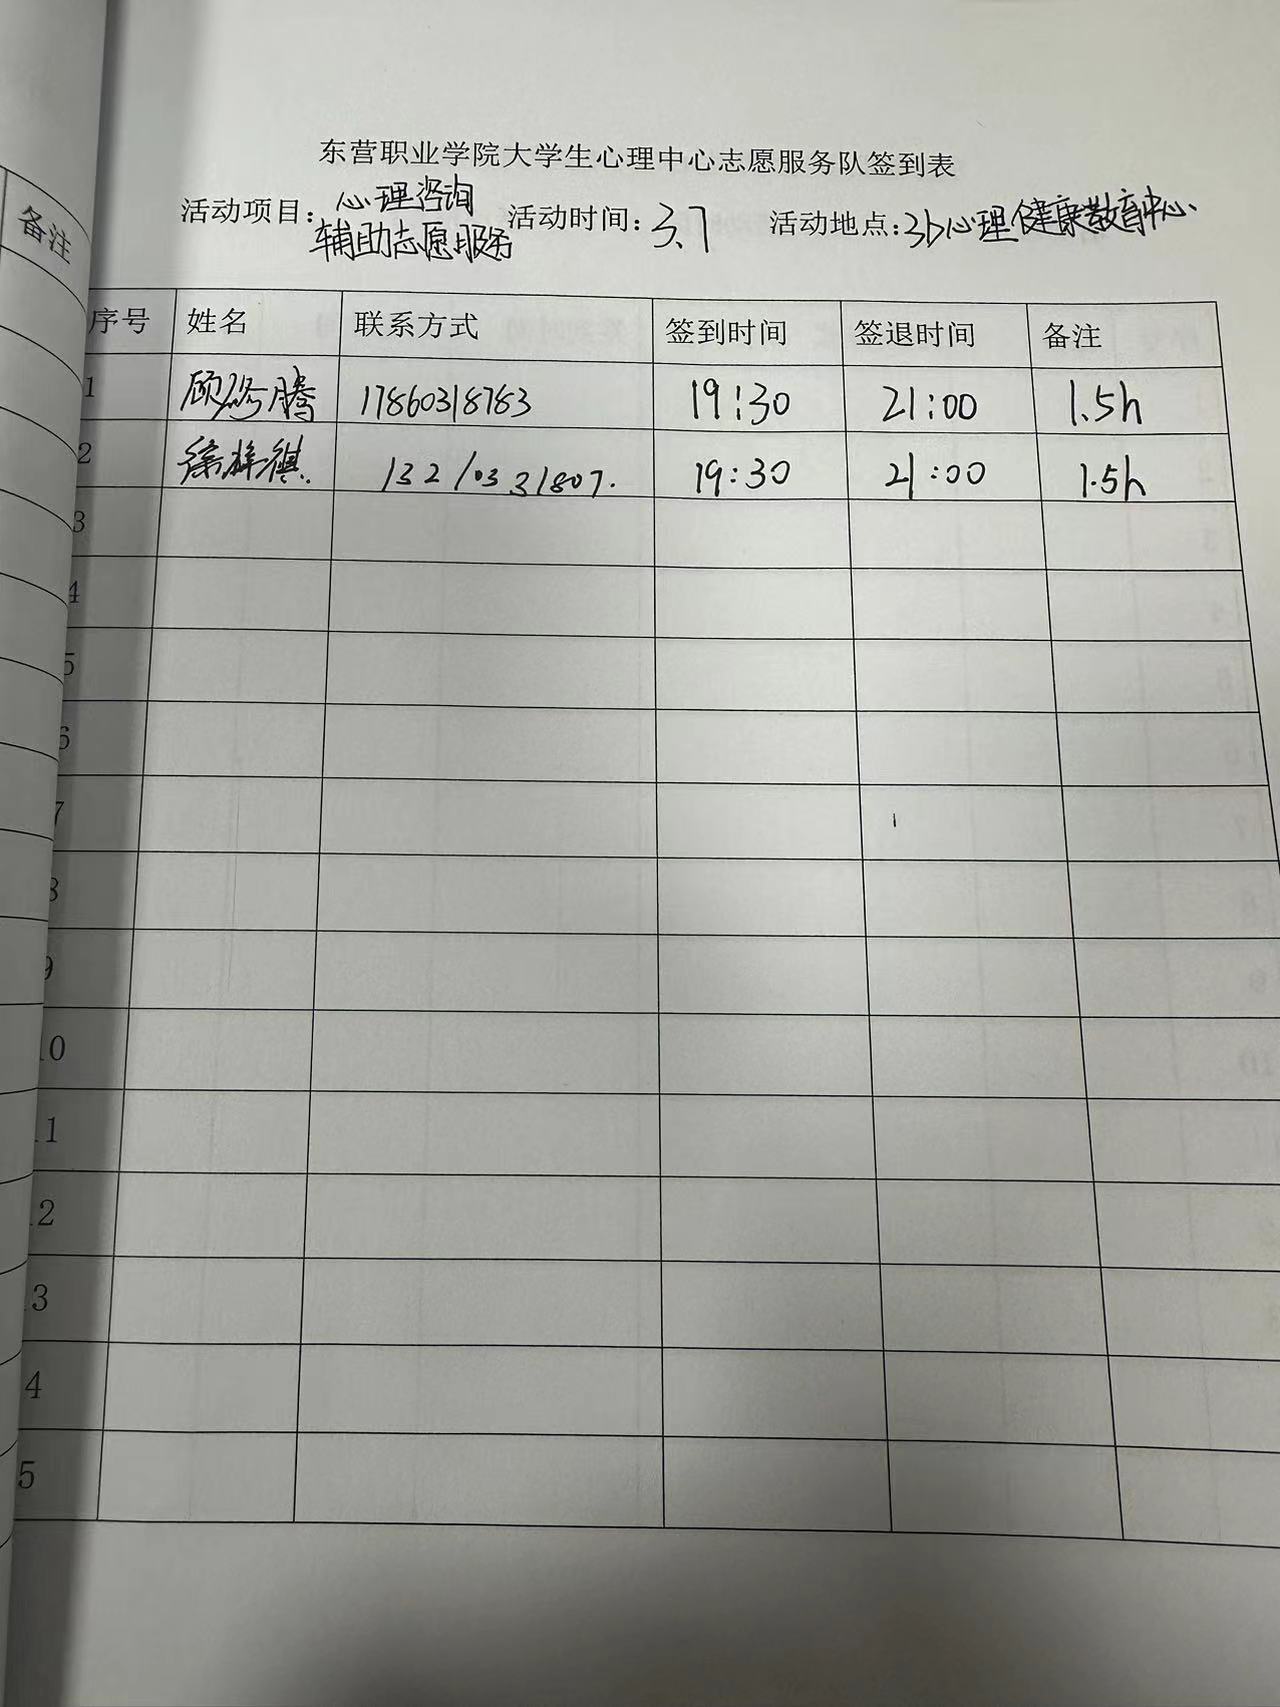 备注
东营职业学院大学生心理中心志愿服务队签到表
活动项目：心理咨询辅助志愿服务 活动时间：3.7 活动地点：3b心理健康教育中心
序号 姓名 联系方式 签到时间 签退时间 备注
1 顾 腾 17860318783 19:30 21:00 1.5h
2 徐梓祺 13210331807. 19:30 21:00 1.5h
3
4
5
6
7
8
9
10
11
12
13
4
5